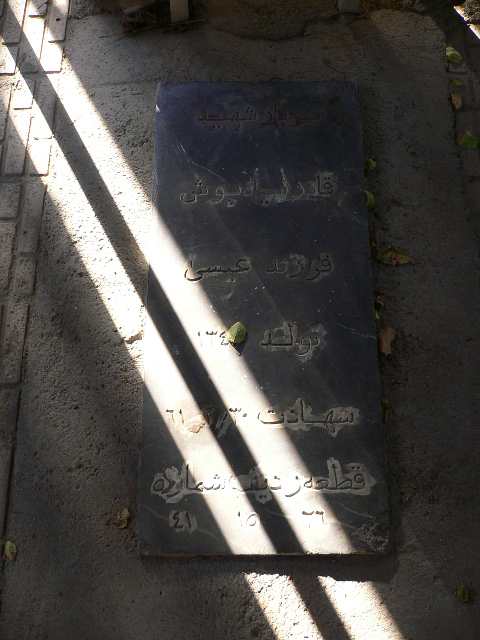 سرباز شهید
قادر سیاه پوش
فرزند عیسی
تولد
شهادت ۳۰
قطعه ردیف شماره
۴۱ ۱۵ ۲۶